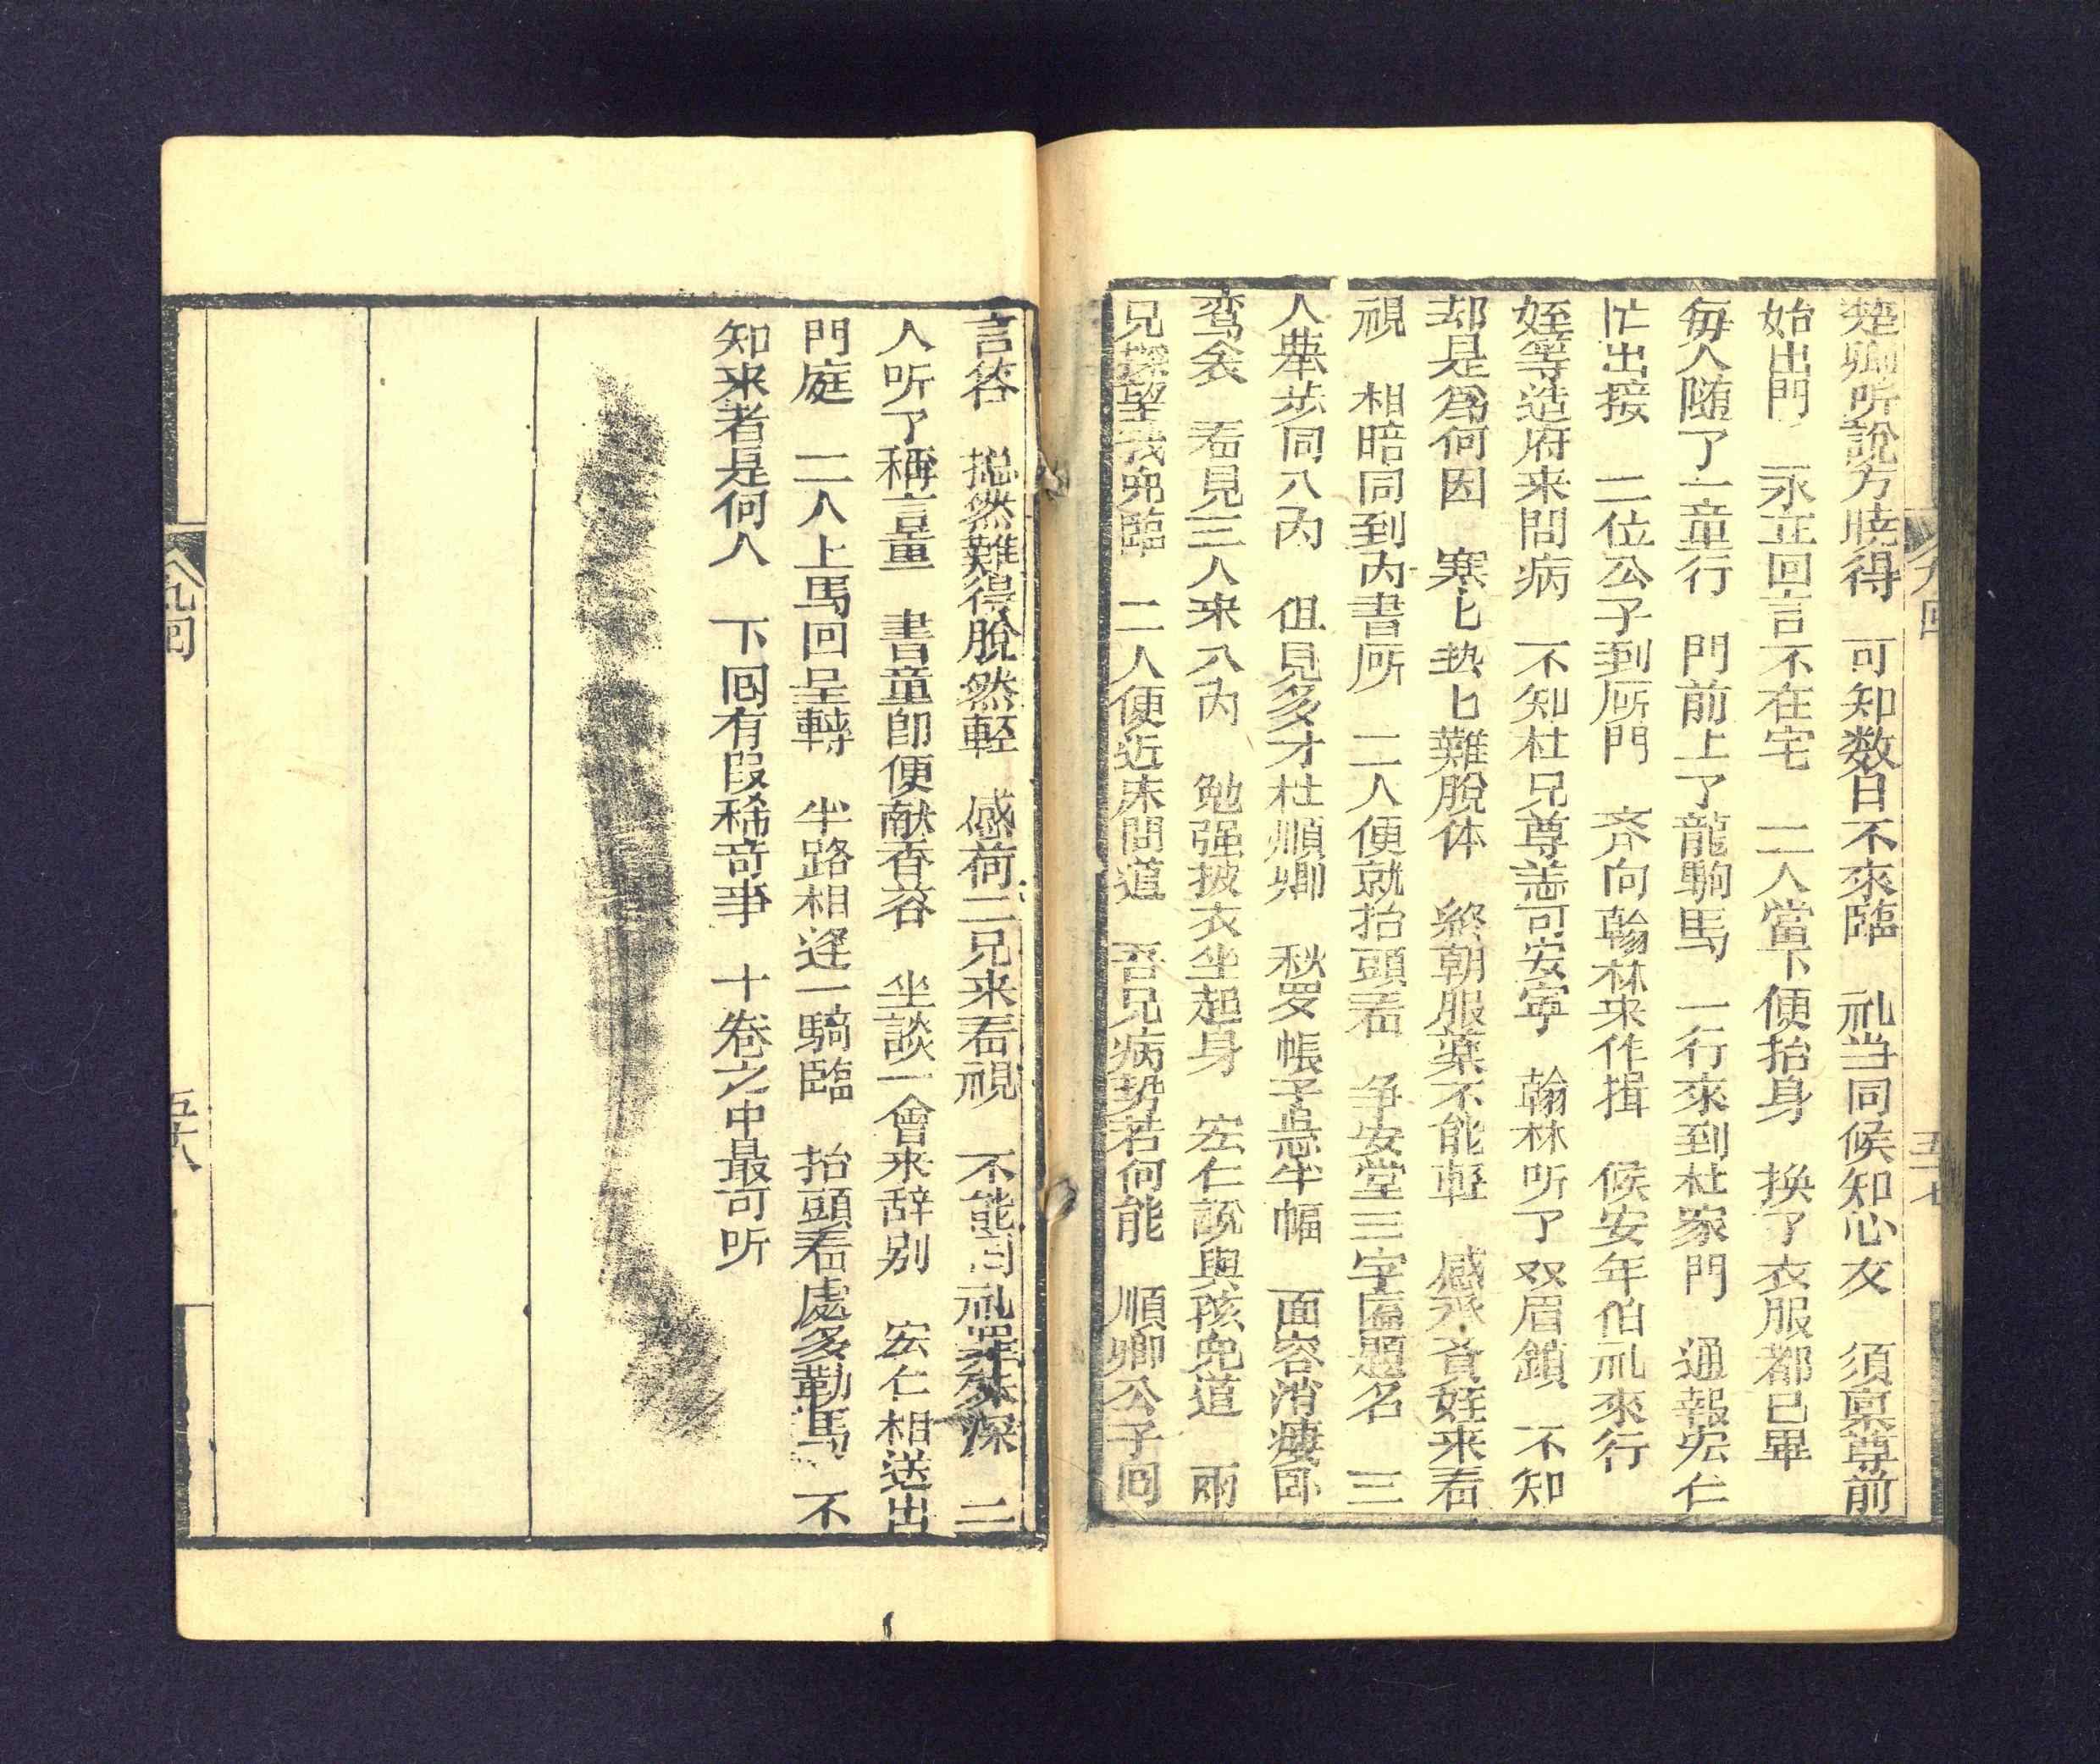 楚卿所說方暁得　可知数日不來臨　礼当同候知心友　須稟尊前
始出門　永正回言不在宅　二人當下便抬身　换了衣服都已畢
毎人随了一童行　門前上了龍駒馬　一行來到杜家門　通報宏仁
忙出接　二位公子到厛門　齐向翰林来作揖　候安年伯礼來行
姪等造府来問病　不知杜兄尊恙可安寕　翰林听了双眉鎖　不知
却是爲何因　寒匕热匕難脱体　終朝服薬不能輕　感承賁姪来看
視　相暗同到内書厛　二人便就抬頭看　争安堂三字匾題名　三
人舉步同入内　伹見多才杜順卿　秋罗帳子㠯半幅　面容消瘦卧
鸾衾　看見三人来入内　勉强披衣坐起身　宏仁說與孩兒道　兩
兄探望我兜臨　二人便近床問道　吾兄病势若何能　順卿公子囘
言答　搃然難得脱然輕　感荷二兄来看視　不能囘礼罪殊深　二
人听了稱言畫　書童卽便献香茗　坐談一會来辞别　宏仁相送出
門庭　二人上馬回呈轉　半路相逢一騎臨　抬頭看處多勒馬　不
知来者是何人　下囘有段稀竒事　十卷之中最可听
九回
五十七
九囘
五十八